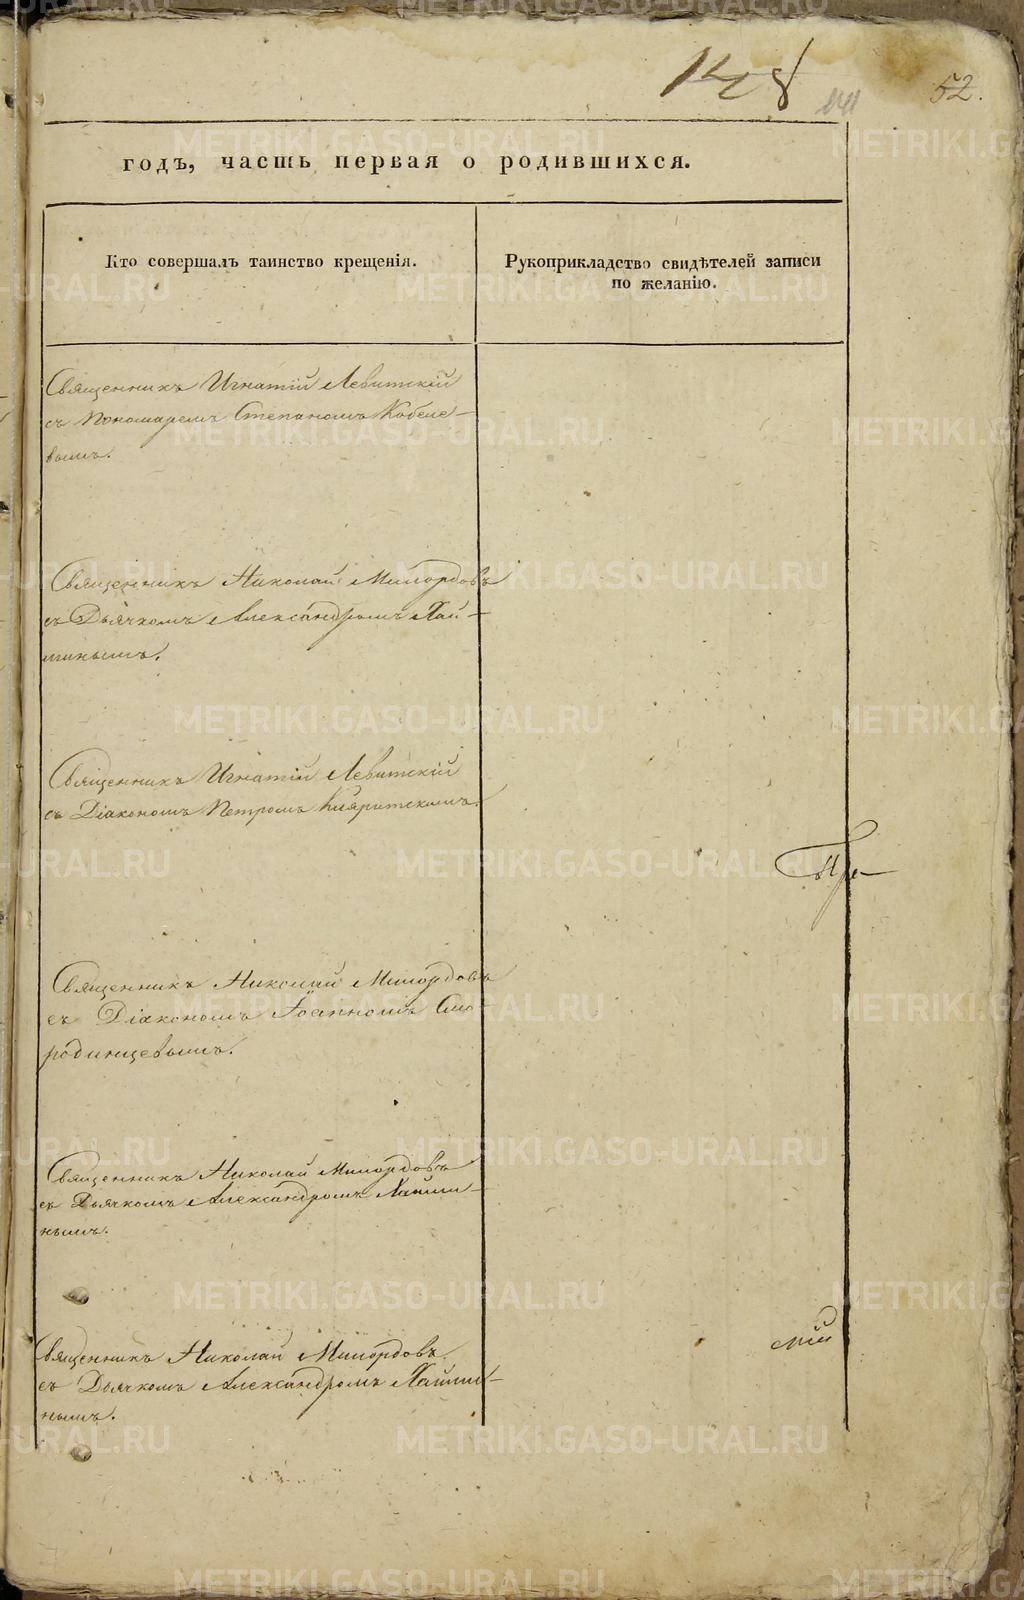 148
141
52.
годъ, часть первая о родившихся.
Кто совершалъ таинство крещенія.
Рукоприкладство свидѣтелей записи
по желанію.
Священникъ Игнатій Левитскій
съ Пономаремъ Степаномъ Кобеле-
вымъ.
Священникъ Николай Милордовъ
съ Дьячкомъ Александромъ
Священникъ Игнатій Левитскій
съ Діакономъ Петромъ
Священникъ Николай Милордовъ
съ Діакономъ Іоанномъ Смо
родинцевымъ.
Священникъ Николай Милордовъ
съ Дьячкомъ Александромъ
нымъ.
Священникъ Николай Милордовъ
съ Дьячкомъ Александромъ
нымъ.
METRIKI.GASO-URAL.RU